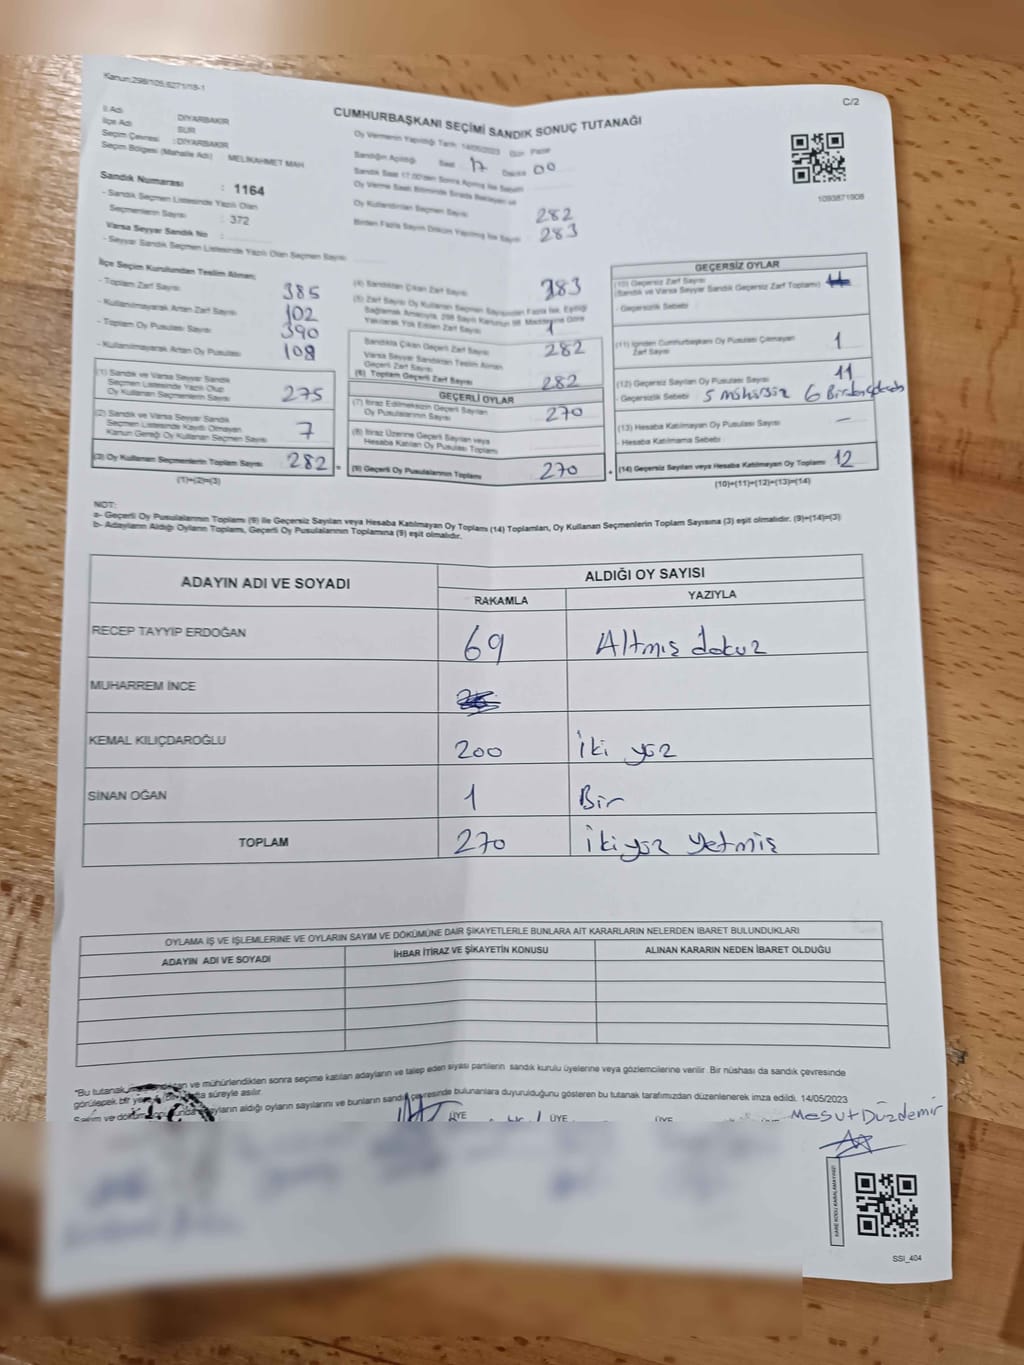 Kanun:298/105,6271/18-1
C/2
CUMHURBAŞKANI SEÇİMİ SANDIK SONUÇ TUTANAĞI
İl Adı : DİYARBAKIR
İlçe Adı : SUR
Seçim Çevresi : DİYARBAKIR
Seçim Bölgesi (Mahalle Adı) MELİKAHMET MAH
Sandık Numarası : 1164
- Sandık Seçmen Listesinde Yazılı Olan
Seçmenlerin Sayısı : 372
Varsa Seyyar Sandık No :
- Seyyar Sandık Seçmen Listesinde Yazılı Olan Seçmen Sayısı
Oy Vermenin Yapıldığı Tarih: 14/05/2023 Gün Pazar
Sandığın Açıldığı Saat 17 Dakika 00
Sandık Saat 17.00'den Sonra Açılmış İse Sebebi
Oy Verme Saati Bitiminde Sırada Bekleyen ve
Oy Kullandırılan Seçmen Sayısı 282
Birden Fazla Sayım Döküm Yapılmış İse Sayısı 283
1093871908
İlçe Seçim Kurulundan Teslim Alınan;
- Toplam Zarf Sayısı 385
- Kullanılmayarak Artan Zarf Sayısı 102
- Toplam Oy Pusulası Sayısı 390
- Kullanılmayarak Artan Oy Pusulası 108
(1) Sandık ve Varsa Seyyar Sandık
Seçmen Listesinde Yazılı Olup
Oy Kullanan Seçmenlerin Sayısı 275
(2) Sandık ve Varsa Seyyar Sandık
Seçmen Listesinde Kayıtlı Olmayan
Kanun Gereği Oy Kullanan Seçmen Sayısı 7
(3) Oy Kullanan Seçmenlerin Toplam Sayısı 282 =
(1)+(2)=(3)
(4) Sandıktan Çıkan Zarf Sayısı 283
(5) Zarf Sayısı Oy Kullanan Seçmen Sayısından Fazla İse, Eşitliği
Sağlamak Amacıyla, 298 Sayılı Kanunun 98. Maddesine Göre
Yakılarak Yok Edilen Zarf Sayısı 1
Sandıkta Çıkan Geçerli Zarf Sayısı 282
Varsa Seyyar Sandıktan Teslim Alınan
Geçerli Zarf Sayısı
(6) Toplam Geçerli Zarf Sayısı 282
GEÇERLİ OYLAR
(7) İtiraz Edilmeksizin Geçerli Sayılan
Oy Pusulalarının Sayısı 270
(8) İtiraz Üzerine Geçerli Sayılan veya
Hesaba Katılan Oy Pusulası Toplamı
(9) Geçerli Oy Pusulalarının Toplamı 270 +
GEÇERSİZ OYLAR
(10) Geçersiz Zarf Sayısı
(Sandık ve Varsa Seyyar Sandık Geçersiz Zarf Toplamı)
- Geçersizlik Sebebi
(11) İçinden Cumhurbaşkanı Oy Pusulası Çıkmayan
Zarf Sayısı 1
(12) Geçersiz Sayılan Oy Pusulası Sayısı 11
- Geçersizlik Sebebi 5 mühürsüz 6
(13) Hesaba Katılmayan Oy Pusulası Sayısı —
- Hesaba Katılmama Sebebi
(14) Geçersiz Sayılan veya Hesaba Katılmayan Oy Toplamı 12
(10)+(11)+(12)+(13)=(14)
NOT:
a- Geçerli Oy Pusulalarının Toplamı (9) ile Geçersiz Sayılan veya Hesaba Katılmayan Oy Toplamı (14) Toplamları, Oy Kullanan Seçmenlerin Toplam Sayısına (3) eşit olmalıdır. (9)+(14)=(3)
b- Adayların Aldığı Oyların Toplamı, Geçerli Oy Pusulalarının Toplamına (9) eşit olmalıdır.
ADAYIN ADI VE SOYADI
ALDIĞI OY SAYISI
RAKAMLA YAZIYLA
RECEP TAYYİP ERDOĞAN 69 Altmış dokuz
MUHARREM İNCE
KEMAL KILIÇDAROĞLU 200 İki yüz
SİNAN OĞAN 1 Bir
TOPLAM 270 İkiyüz Yetmiş
OYLAMA İŞ VE İŞLEMLERİNE VE OYLARIN SAYIM VE DÖKÜMÜNE DAİR ŞİKAYETLERLE BUNLARA AİT KARARLARIN NELERDEN İBARET BULUNDUKLARI
ADAYIN ADI VE SOYADI İHBAR İTİRAZ VE ŞİKAYETİN KONUSU ALINAN KARARIN NEDEN İBARET OLDUĞU
"Bu tutanak ve mühürlendikten sonra seçime katılan adayların ve talep eden siyasi partilerin sandık kurulu üyelerine veya gözlemcilerine verilir. Bir nüshası da sandık çevresinde
görülecek bir süreyle asılır.
Sayım ve adayların aldığı oyların sayılarını ve bunların sandık çevresinde bulunanlara duyurulduğunu gösteren bu tutanak tarafımızdan düzenlenerek imza edildi. 14/05/2023
ÜYE ÜYE ÜYE Mesut Düzdemir
KARE KODU KARALAMAYINIZ!
SSI_404